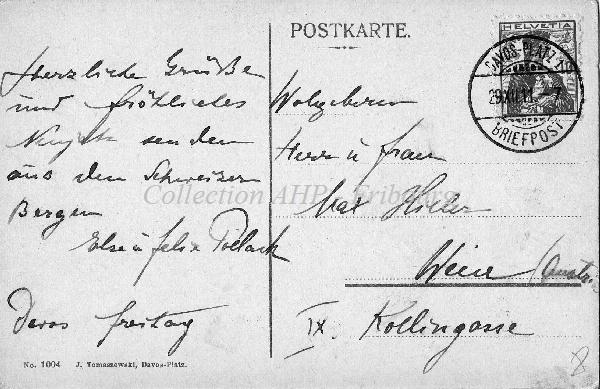 POSTKARTE.
HELVETIA
DAVOS-PLATZ 1
29.XII.11. 7
BRIEFPOST
Herzliche Grüße
und fröhliches
Neujahr senden
aus den Schweizer
Bergen
Else u. Felix Pollack
Davos Freitag
Wohlgeboren
Herrn u. Frau
Max
Wien (Austr.
IX. Kollingasse
Collection AHP - Fribourg
No. 1004 J. Tomaszewski, Davos-Platz.